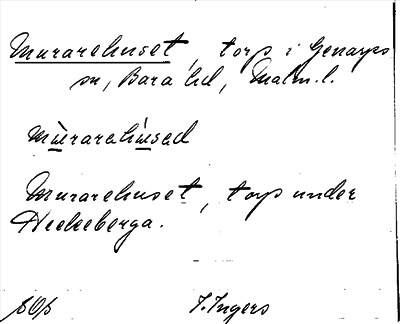 Murarehuset, torp i Genarps
sn, Bara hd, Malm. l.
mùrarehúsed
Murarehuset, torp under
Heckeberga.
I. Ingers